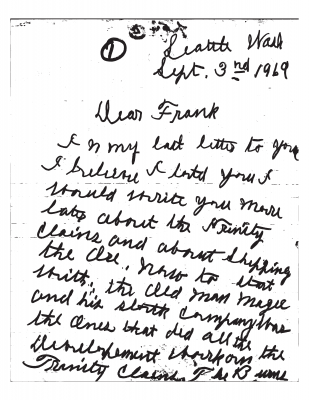 ①
Seattle Wash
Sept. 3nd 1969
Dear Frank
In my last letter to you
I believe I told you I
would write you more
later about the Trinity
Claims and about shipping
the Ore. Now to start
with, the Old Man Magee
and his Company was
the Ones that did all the
Developement work on the
Trinity Claims.